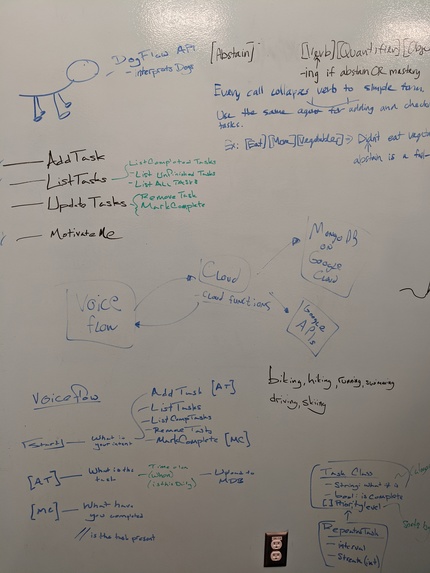 DogFlow API
- interprets Dogs
[Abstain]
[Verb][Quantifier][Obj
-ing if abstain OR mastery
Every call collapses verb to simple
Use the same for adding and
tasks.
Ex: [Eat][More][Vegetables] => Didn't eat
abstain is a
AddTask
ListTasks
List Completed Tasks
- List Unfinished Tasks
- List ALL Tasks
UpdateTasks
- Remove Task
- MarkComplete
MotivateMe
Voice
flow
Cloud
- Cloud functions
MongoDB
on
Google
Cloud
Google
APIs
biking, hiking, running, swimming
driving, skiing
Voiceflow
[Start]
What is
your intent
Add Task [AT]
- ListTasks
- List CompTasks
- Remove Tasks
- MarkComplete [MC]
[AT]
What is the
task
(when)
(is this Daily)
Upload to
MDB
[MC]
What have
you completed
// is the task present
Task Class
- String: what
- bool: is complete
Priority level
RepeatedTask
- interval
- Streak (int)